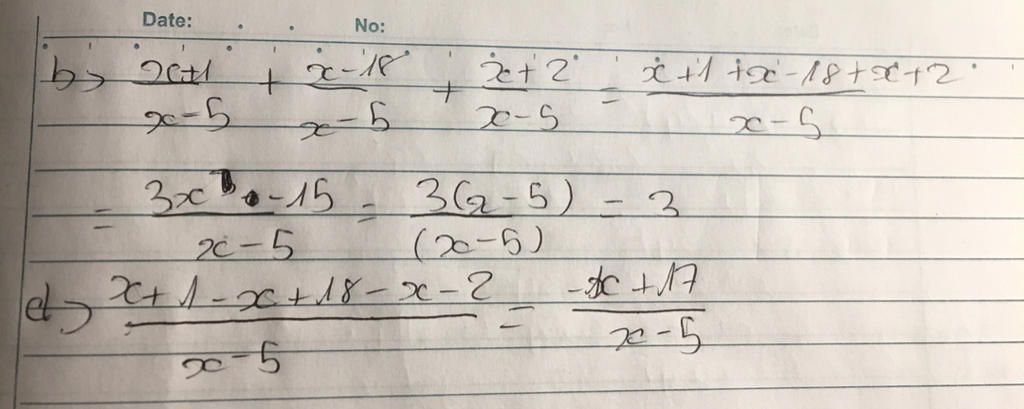 Date: No:
b) \frac{x+1}{x-5} + \frac{x-18}{x-5} + \frac{x+2}{x-5} = \frac{x+1+x-18+x+2}{x-5}
= \frac{3x-15}{x-5} = \frac{3(x-5)}{(x-5)} = 3
d) \frac{x+1-x+18-x-2}{x-5} = \frac{-x+17}{x-5}